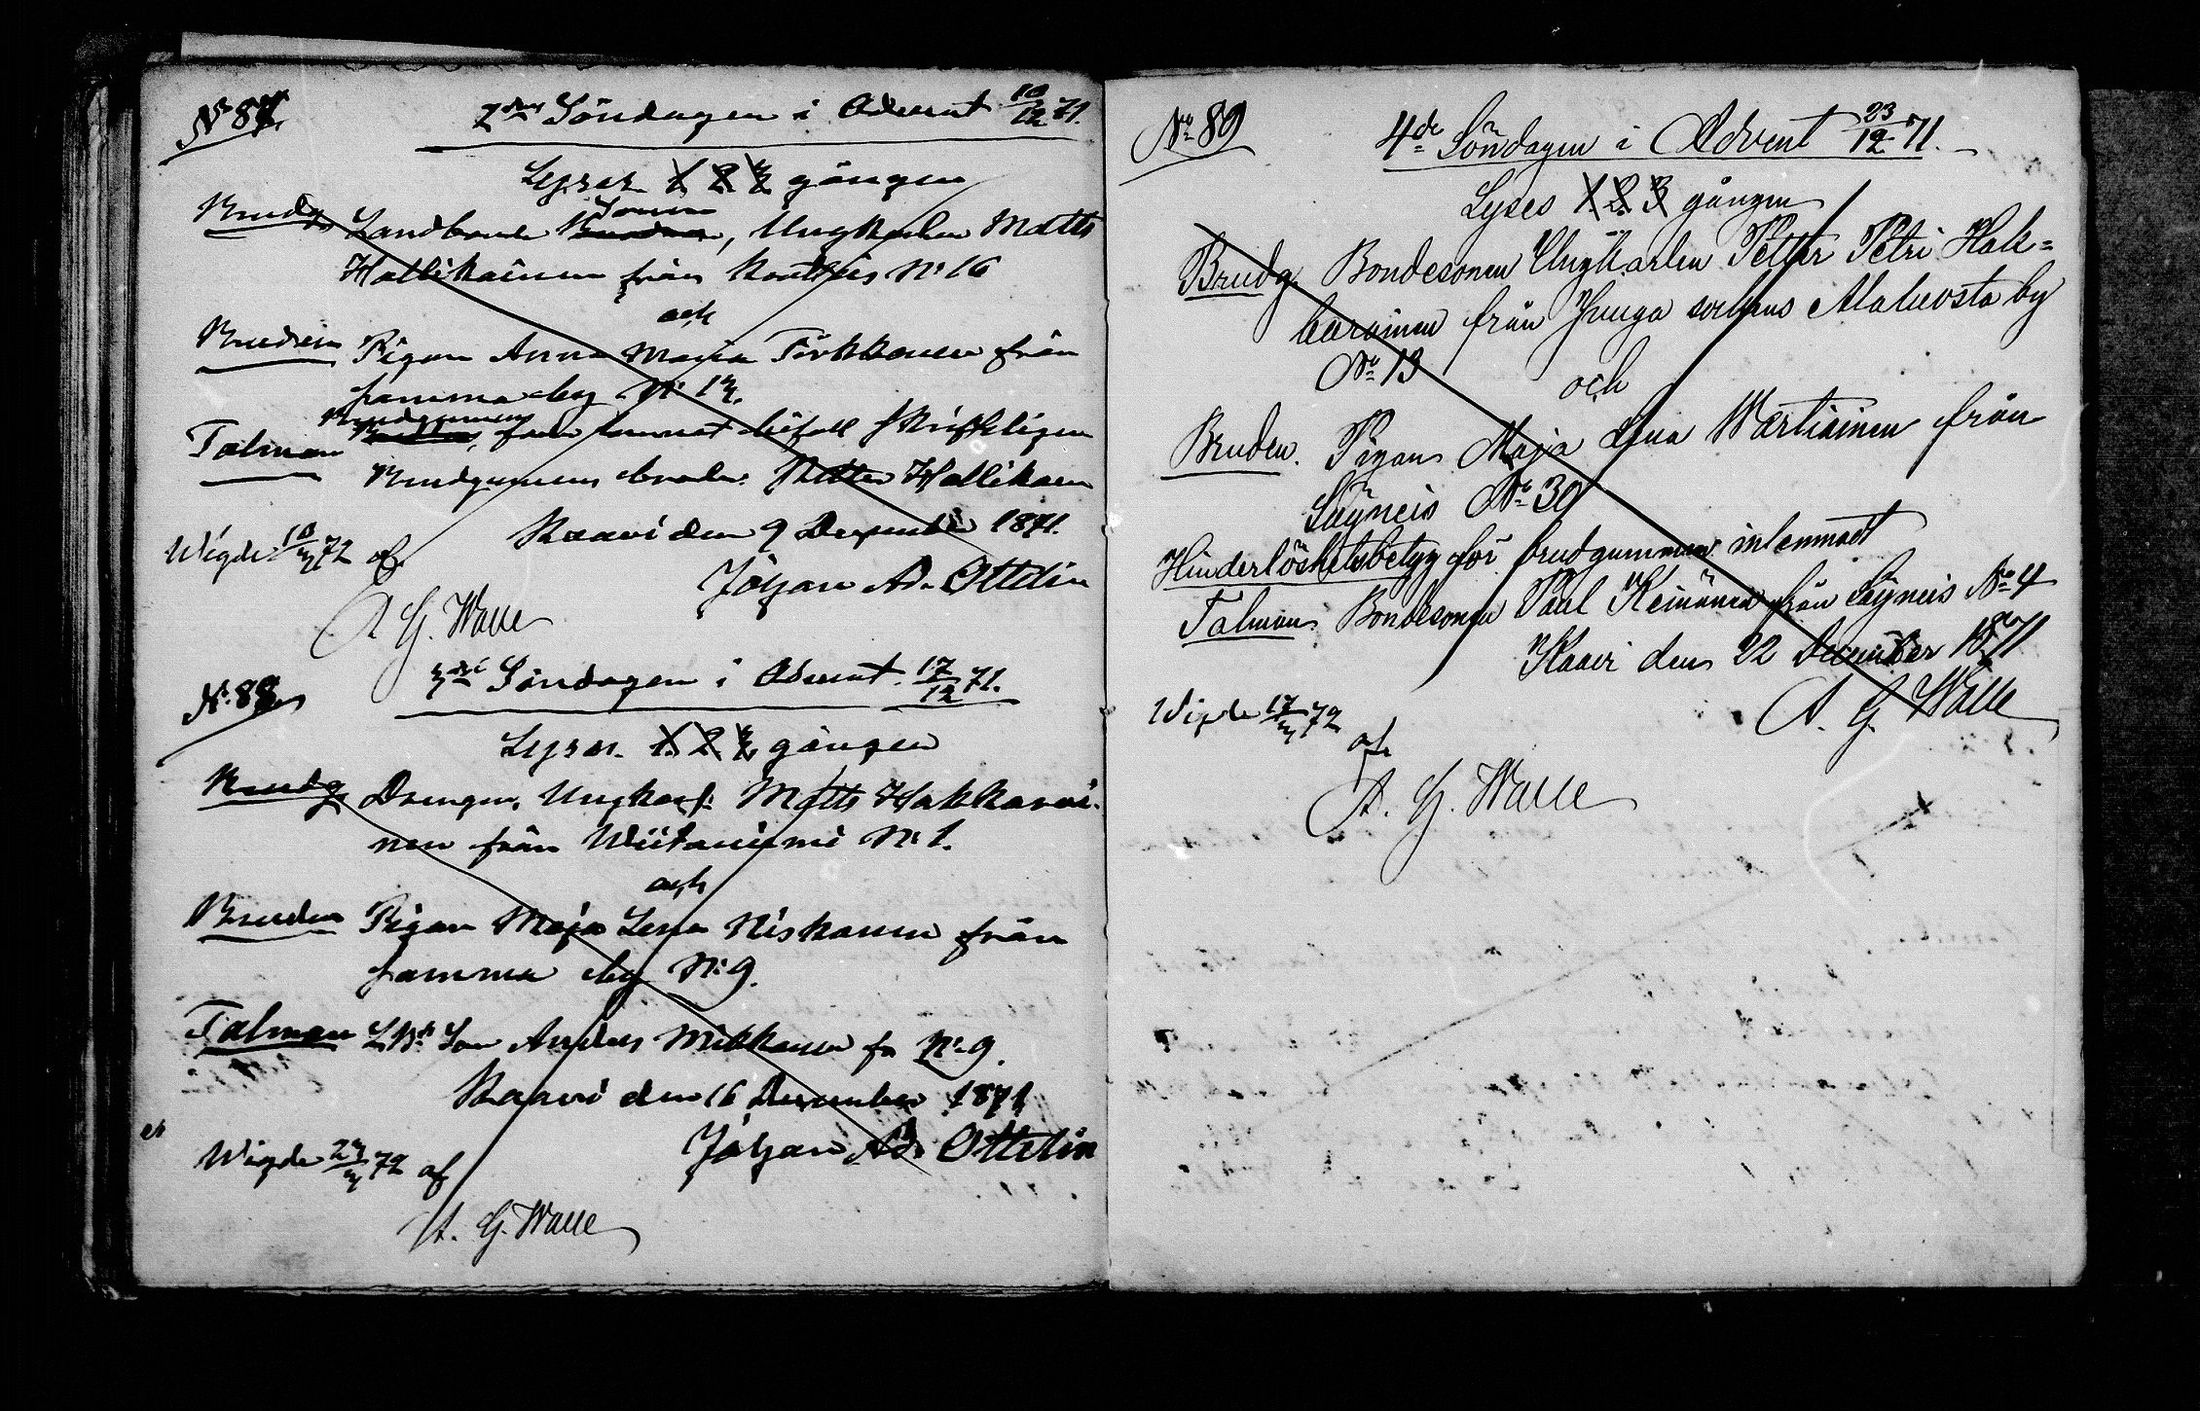 No 87.
2dra Söndagen i Advent 10/12 71.
Lyses 1. 2. 3 gången
Brudg. Landbonde Sonen, Ungkarlen Matts
Hallikainen från Kortteis No 16
och
Bruden Pigan Anna Maija Törkkönen från
samma by No 13.
Talman Brudgummens
Brudgummens broder Petter Hallikain
Kaavi den 9 December 1871.
Johan Ad. Ottelin
Wigde 10/3 72 af
A G. Walle
No 88
3dje Söndagen i Advent 17/12 71.
Lyses. 1. 2. 3. gången
Brudg Drengen, Ungkarl: Matts Hakkarai-
nen från Wiitaniemi No 1.
och
Bruden Pigan Maja Lena Niskanen från
samma by No 9.
Talman Lbd Son Anders Miikkanen fr No 9.
Kaavi den 16 December 1871
Johan Ad. Ottelin
Wigde 24/3 72 af
A. G. Walle
No 89
4de Söndagen i Advent 23/12 71.
Lyses 1. 2. 3 gången
Brudg. Bondesonen Ungkarlen Petter Petri Hak=
karainen från Juuga sockens Alaluosta by
No 13
och
Bruden. Pigan Maja Lena Wartiainen från
Säyneis No 30
Hinderlöshetsbetyg för brudgummen inlemnadt
Talman Bondesonen Paul Keinänen från Säyneis No 4
Kaavi den 22 December 1871
A. G. Walle
Wigde 17/3 72
af
A. G. Walle